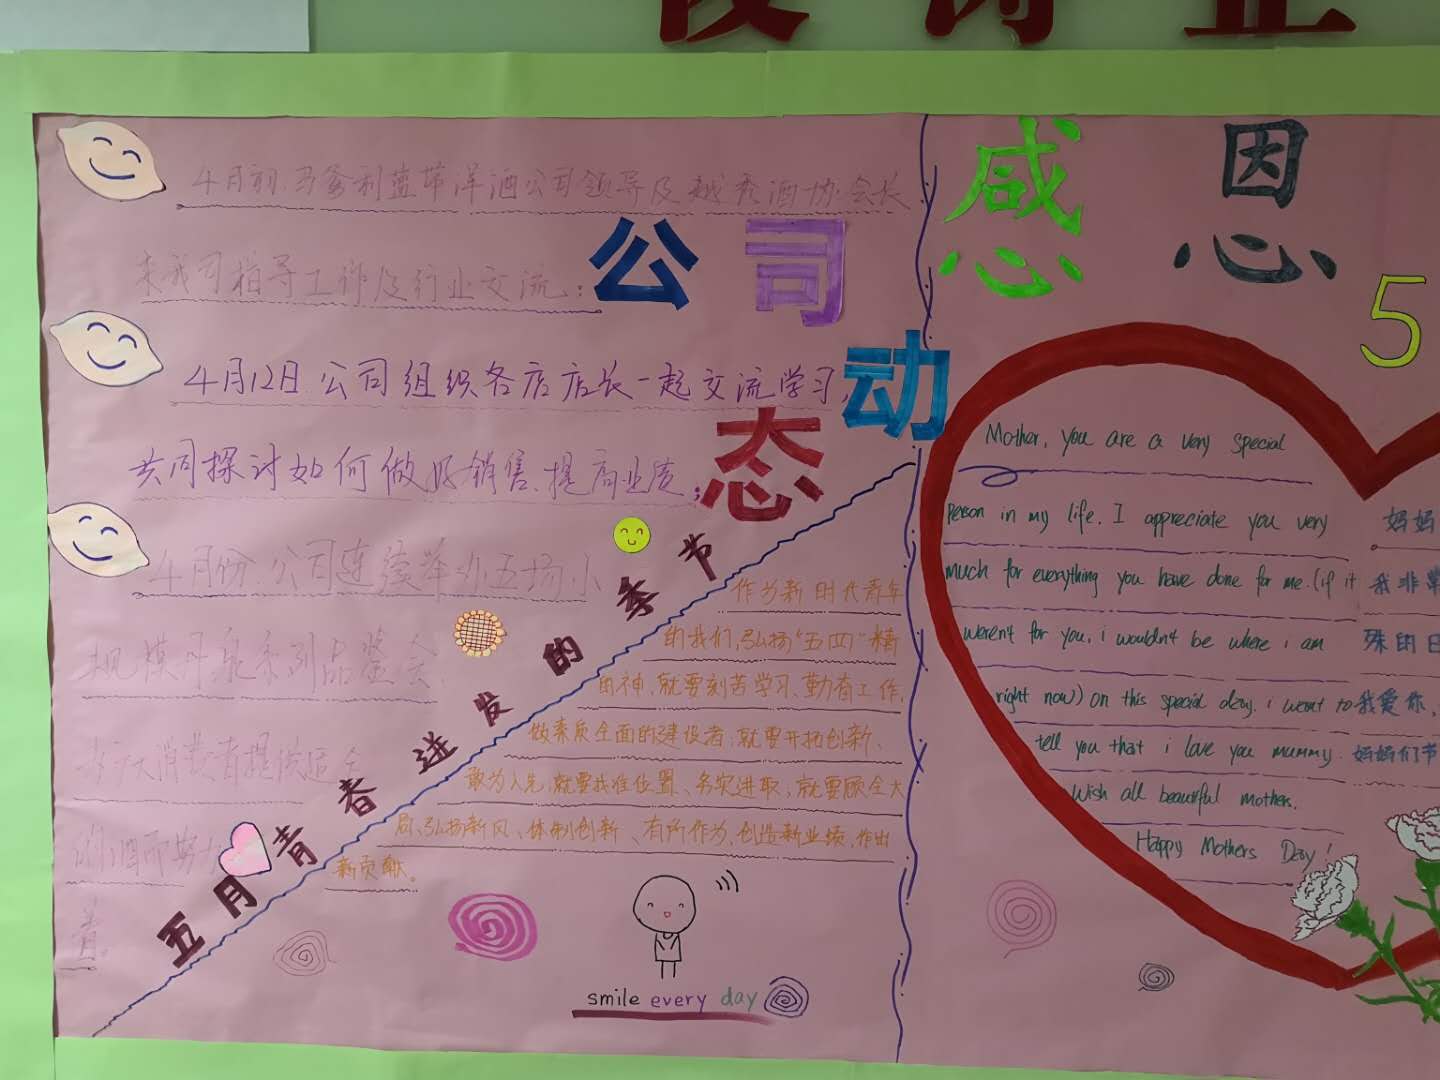 4月初.马爹利蓝带洋酒公司领导及越秀酒协会长
来我司指导工作及行业交流;
4月12日.公司组织各店店长一起交流学习,
共同探讨如何做好销售、提高业绩;
4月份.公司连续举办五场小
规模丹泉系列品鉴会,
为广大消费者提供
的酒而努力
着。
公司动态
五月青春迸发的季节
作为新时代青年
的我们,弘扬“五四”精
的神,就要刻苦学习、勤奋工作,
做素质全面的建设者;就要开拓创新、
敢为人先;就要找准位置、务实进取;就要顾全大
局、弘扬新风、体制创新、有所作为,创造新业绩,作出
新贡献。
smile every day
感恩
5
Mother, you are a very special
person in my life. I appreciate you very
much for everything you have done for me. (if it
weren't for you, i wouldn't be where i am
right now) on this special day. i want to
tell you that i love you mummy.
Wish all beautiful mothers.
Happy Mothers Day!
妈妈
我非常
殊的日
我爱你,
妈妈们节